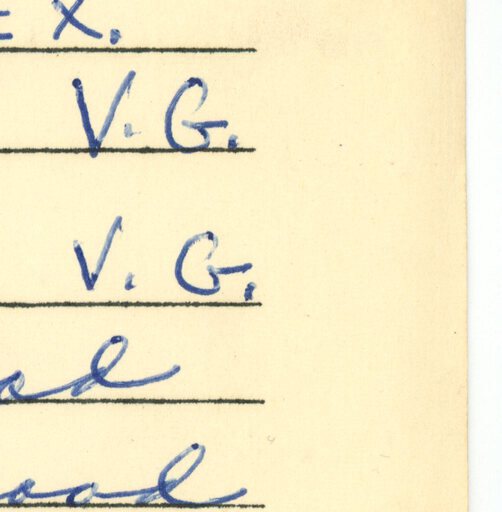 EX.
V. G.
V. G.
od
ood